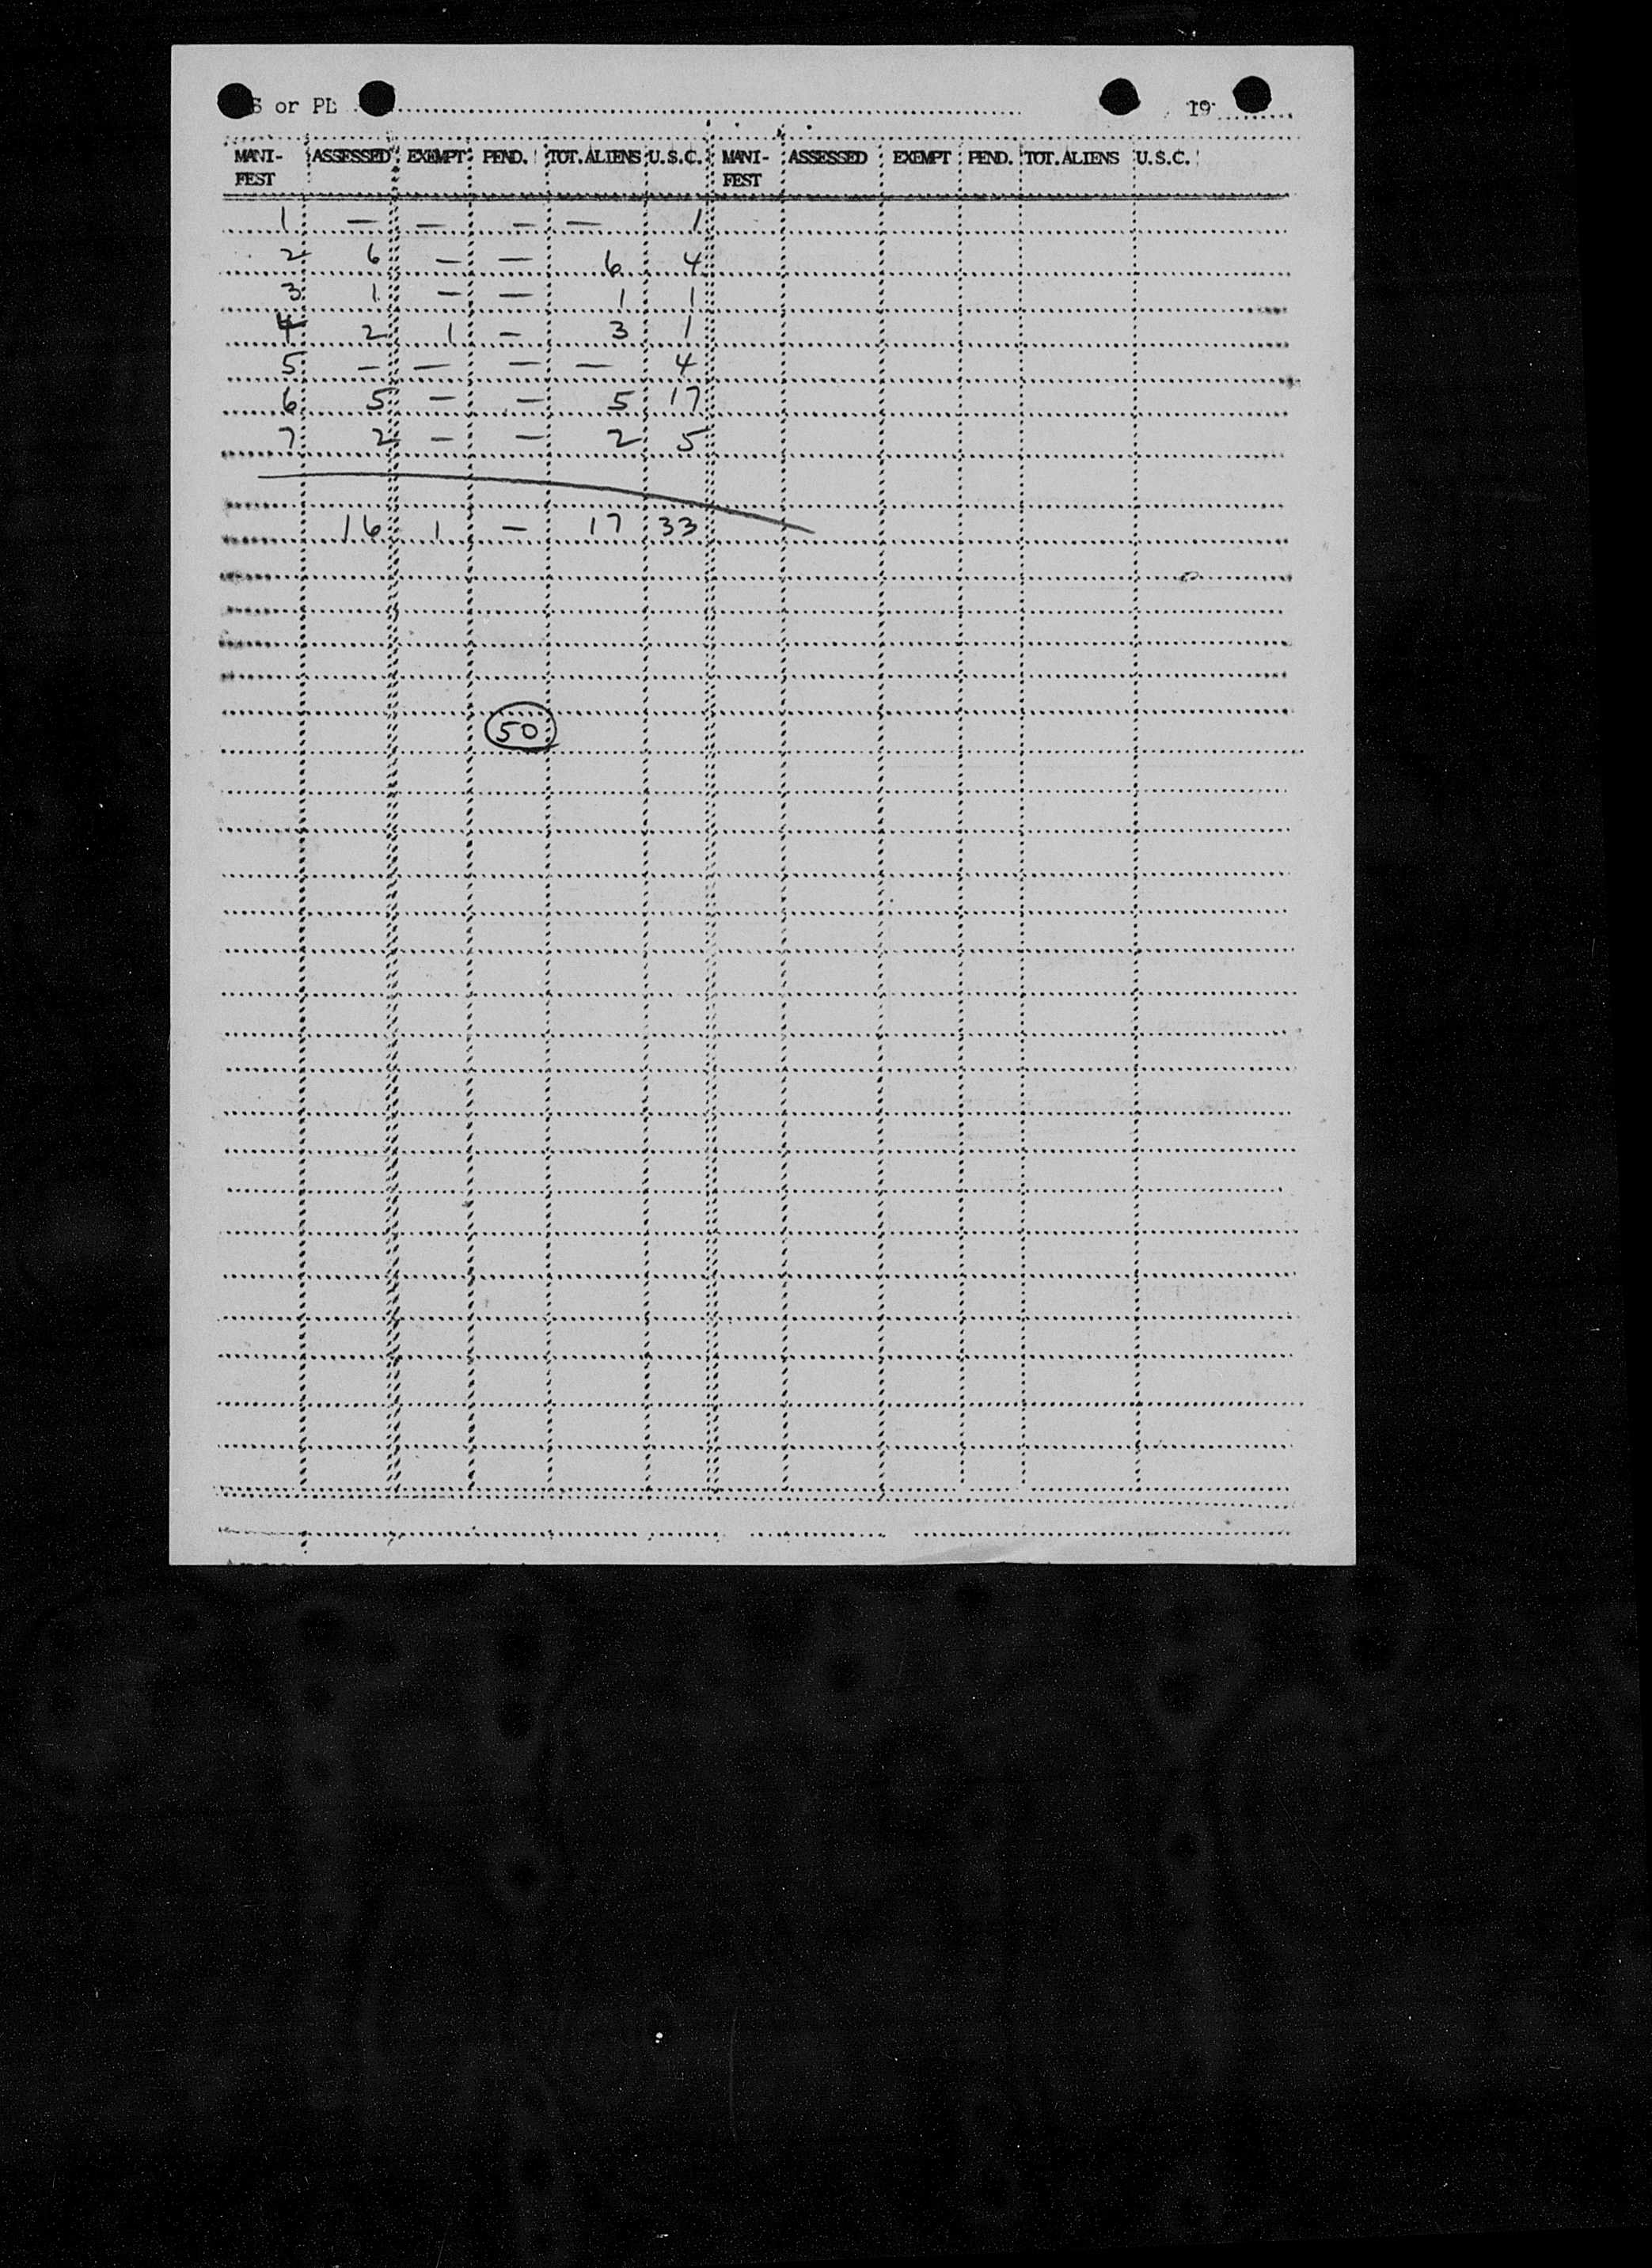 S or PL 19
MANI- ASSESSED EXEMPT PEND. TOT.ALIENS U.S.C. MANI- ASSESSED EXEMPT PEND. TOT.ALIENS U.S.C.
FEST FEST
1 — — — — 1
2 6 — — 6 4
3 1 — — 1 1
4 2 1 — 3 1
5 — — — — 4
6 5 — — 5 17
7 2 — — 2 5
16 1 — 17 33
50